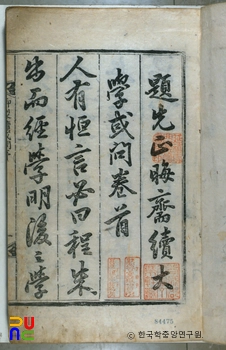 題先正晦齋續大
學或問卷首
人有恒言必曰程朱
出而經學明後之學
84475
한국학중앙연구원